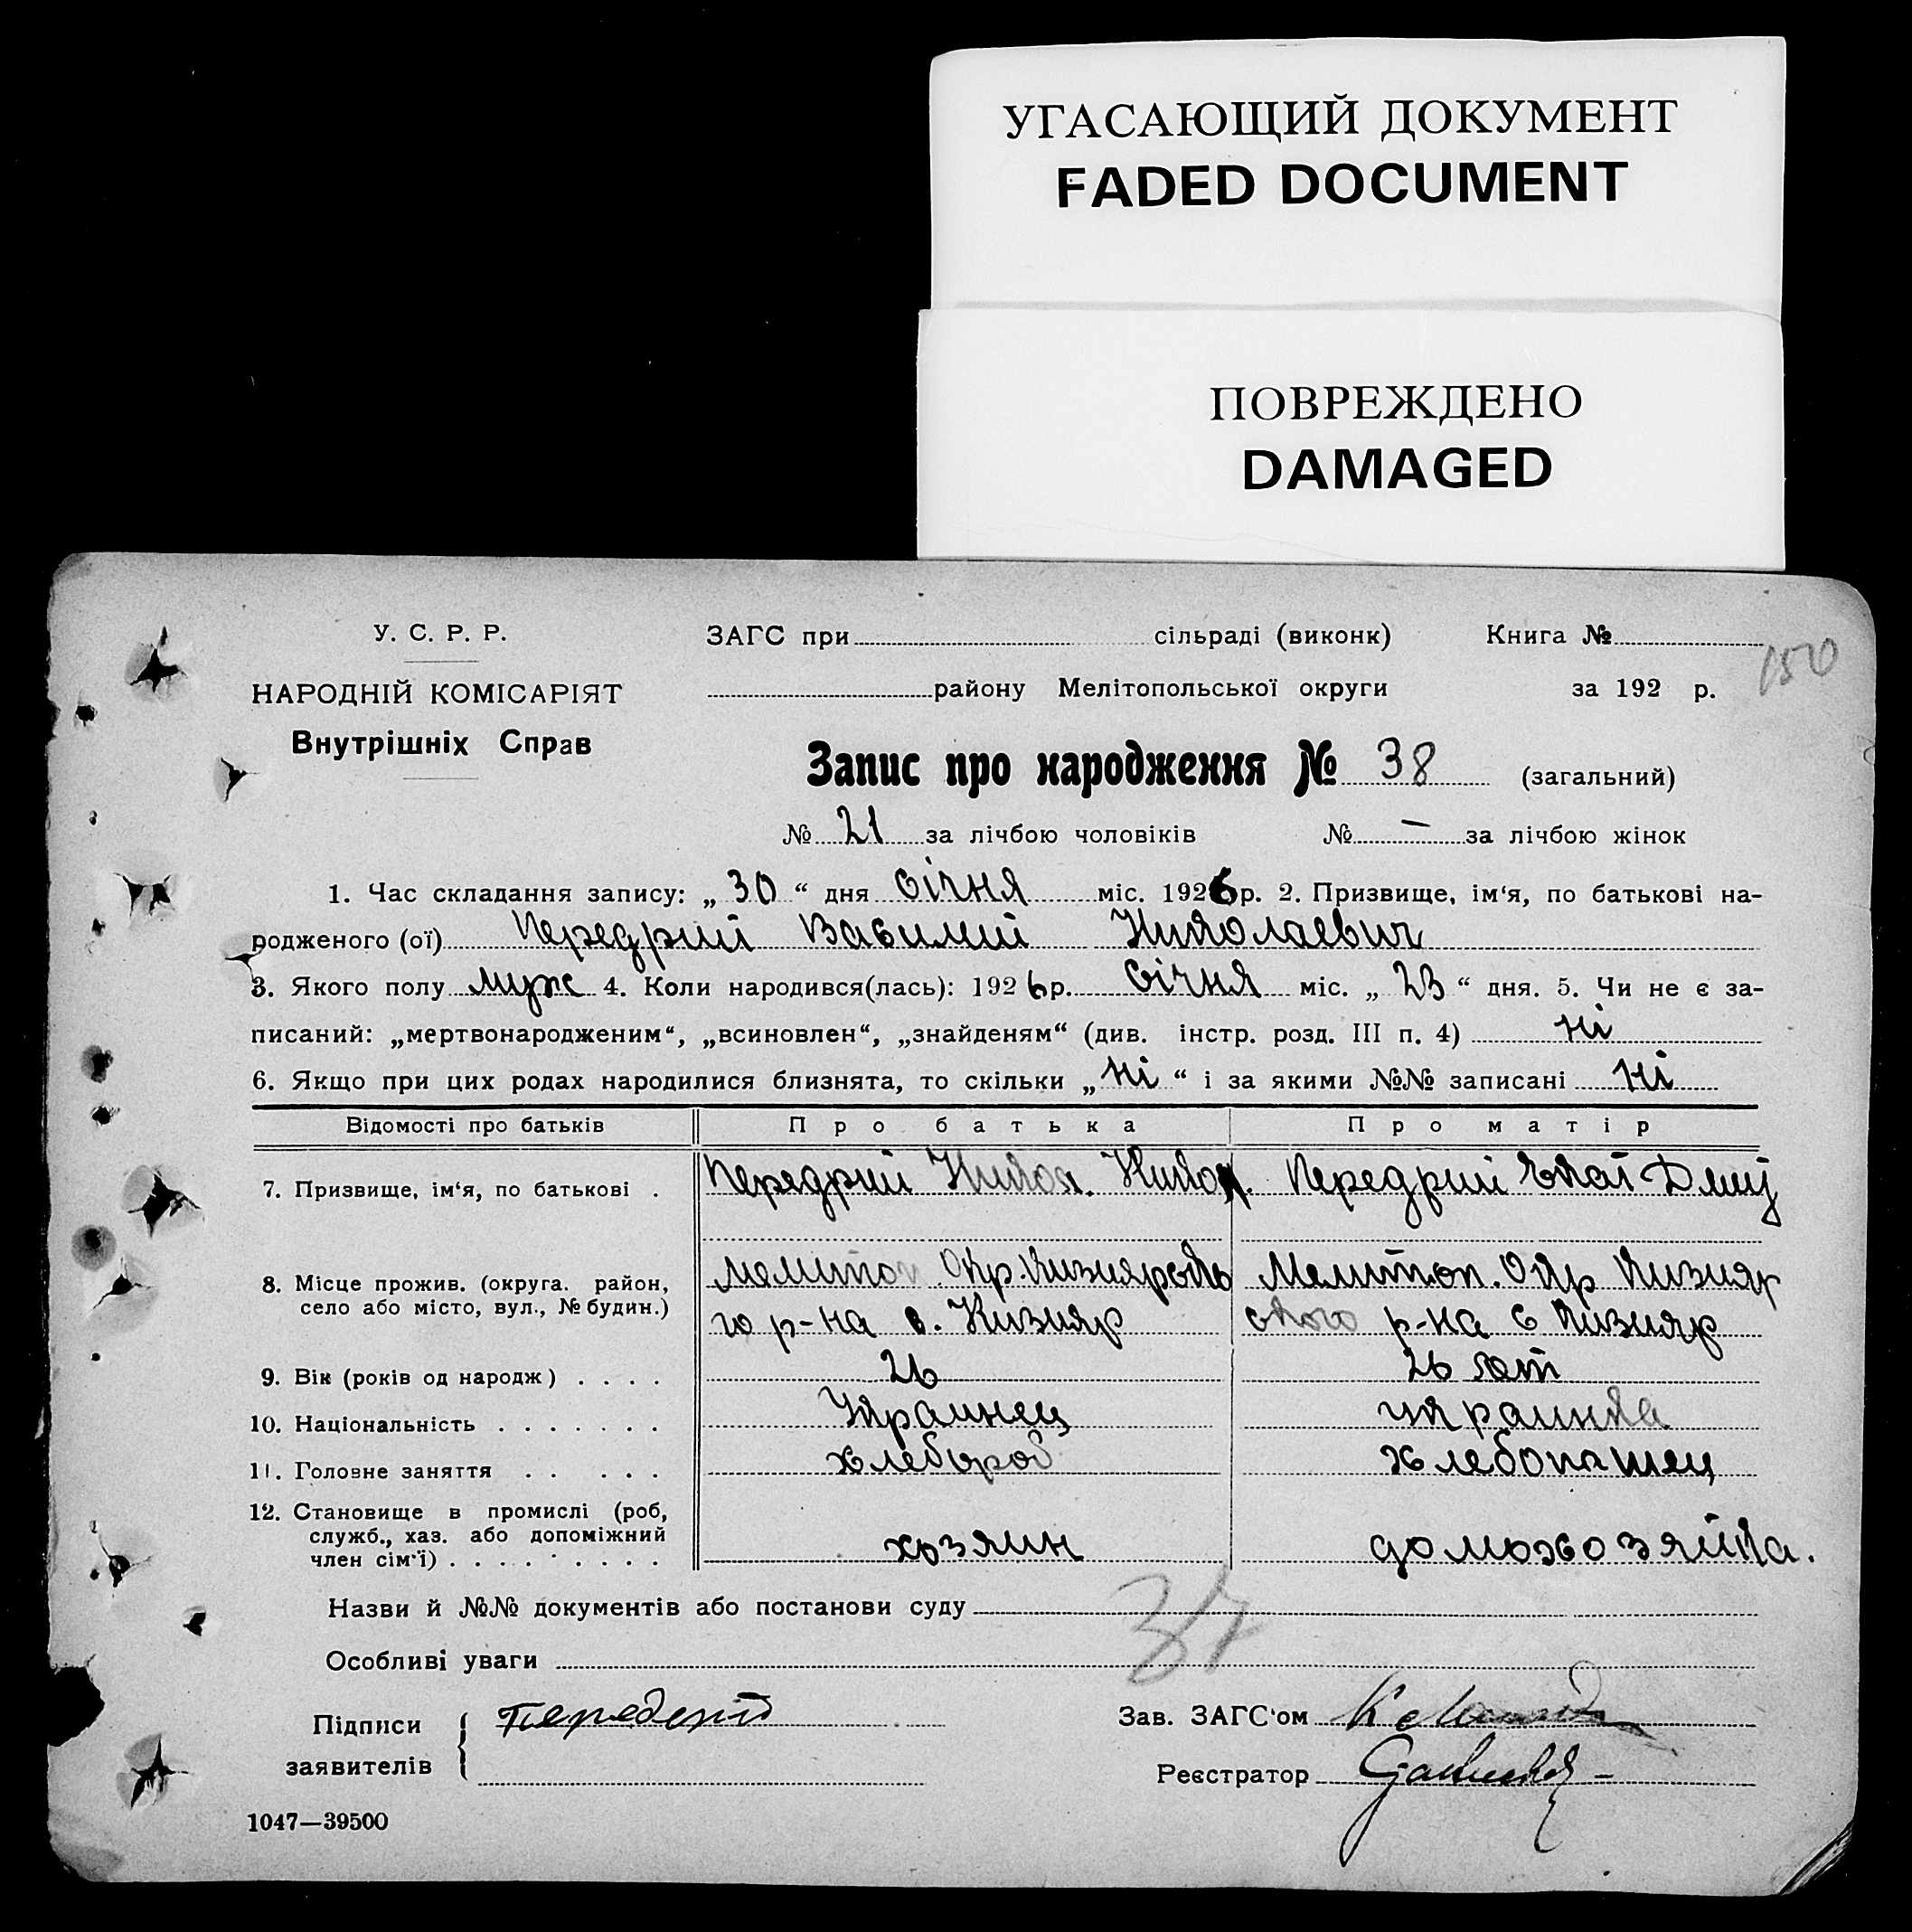 УГАСАЮЩИЙ ДОКУМЕНТ
FADED DOCUMENT
ПОВРЕЖДЕНО
DAMAGED
У. С. Р. Р.
НАРОДНІЙ КОМІСАРІЯТ
Внутрішніх Справ
ЗАГС при сільраді (виконк) Книга №
150
району Мелітопольської округи за 192 р.
Запис про народження № 38 (загальний)
№ 21 за лічбою чоловіків № — за лічбою жінок
1. Час складання запису: „ 30 “ дня січня міс. 1926 р. 2. Призвище, ім‘я, по батькові на-
родженого (ої) Передрий Василий Николаевич
3. Якого полу муж 4. Коли народився(лась): 1926 р. січня міс. „ 23 “ дня. 5. Чи не є за-
писаний: „мертвонародженим“, „всиновлен“, „знайденям“ (див. інстр. розд. III п. 4) ні
6. Якщо при цих родах народилися близнята, то скільки „ ні “ і за якими №№ записані ні
Відомості про батьків Про батька Про матір
7. Призвище, ім‘я, по батькові . Передрий Никол. Никол. Передрий Екат Дмит
8. Місце прожив. (округа. район, Мелитоп Окр. Кизиярсько Мелитоп. Окр Кизияр
село або місто, вул., № будин.) го р-на с. Кизияр ского р-на с Кизияр
9. Вік (років од народж) . . . . 26 26 лет
10. Національність . . . . . . . Украинец украинка
11. Головне заняття . . . . . хлебороб хлебопашец
12. Становище в промислі (роб,
служб., хаз. або допоміжний
член сім‘ї) . . . . . . . . . хозяин домохозяйка.
Назви й №№ документів або постанови суду
Особливі уваги
Підписи заявителів Передерій
Зав. ЗАГС‘ом
Реєстратор
1047—39500